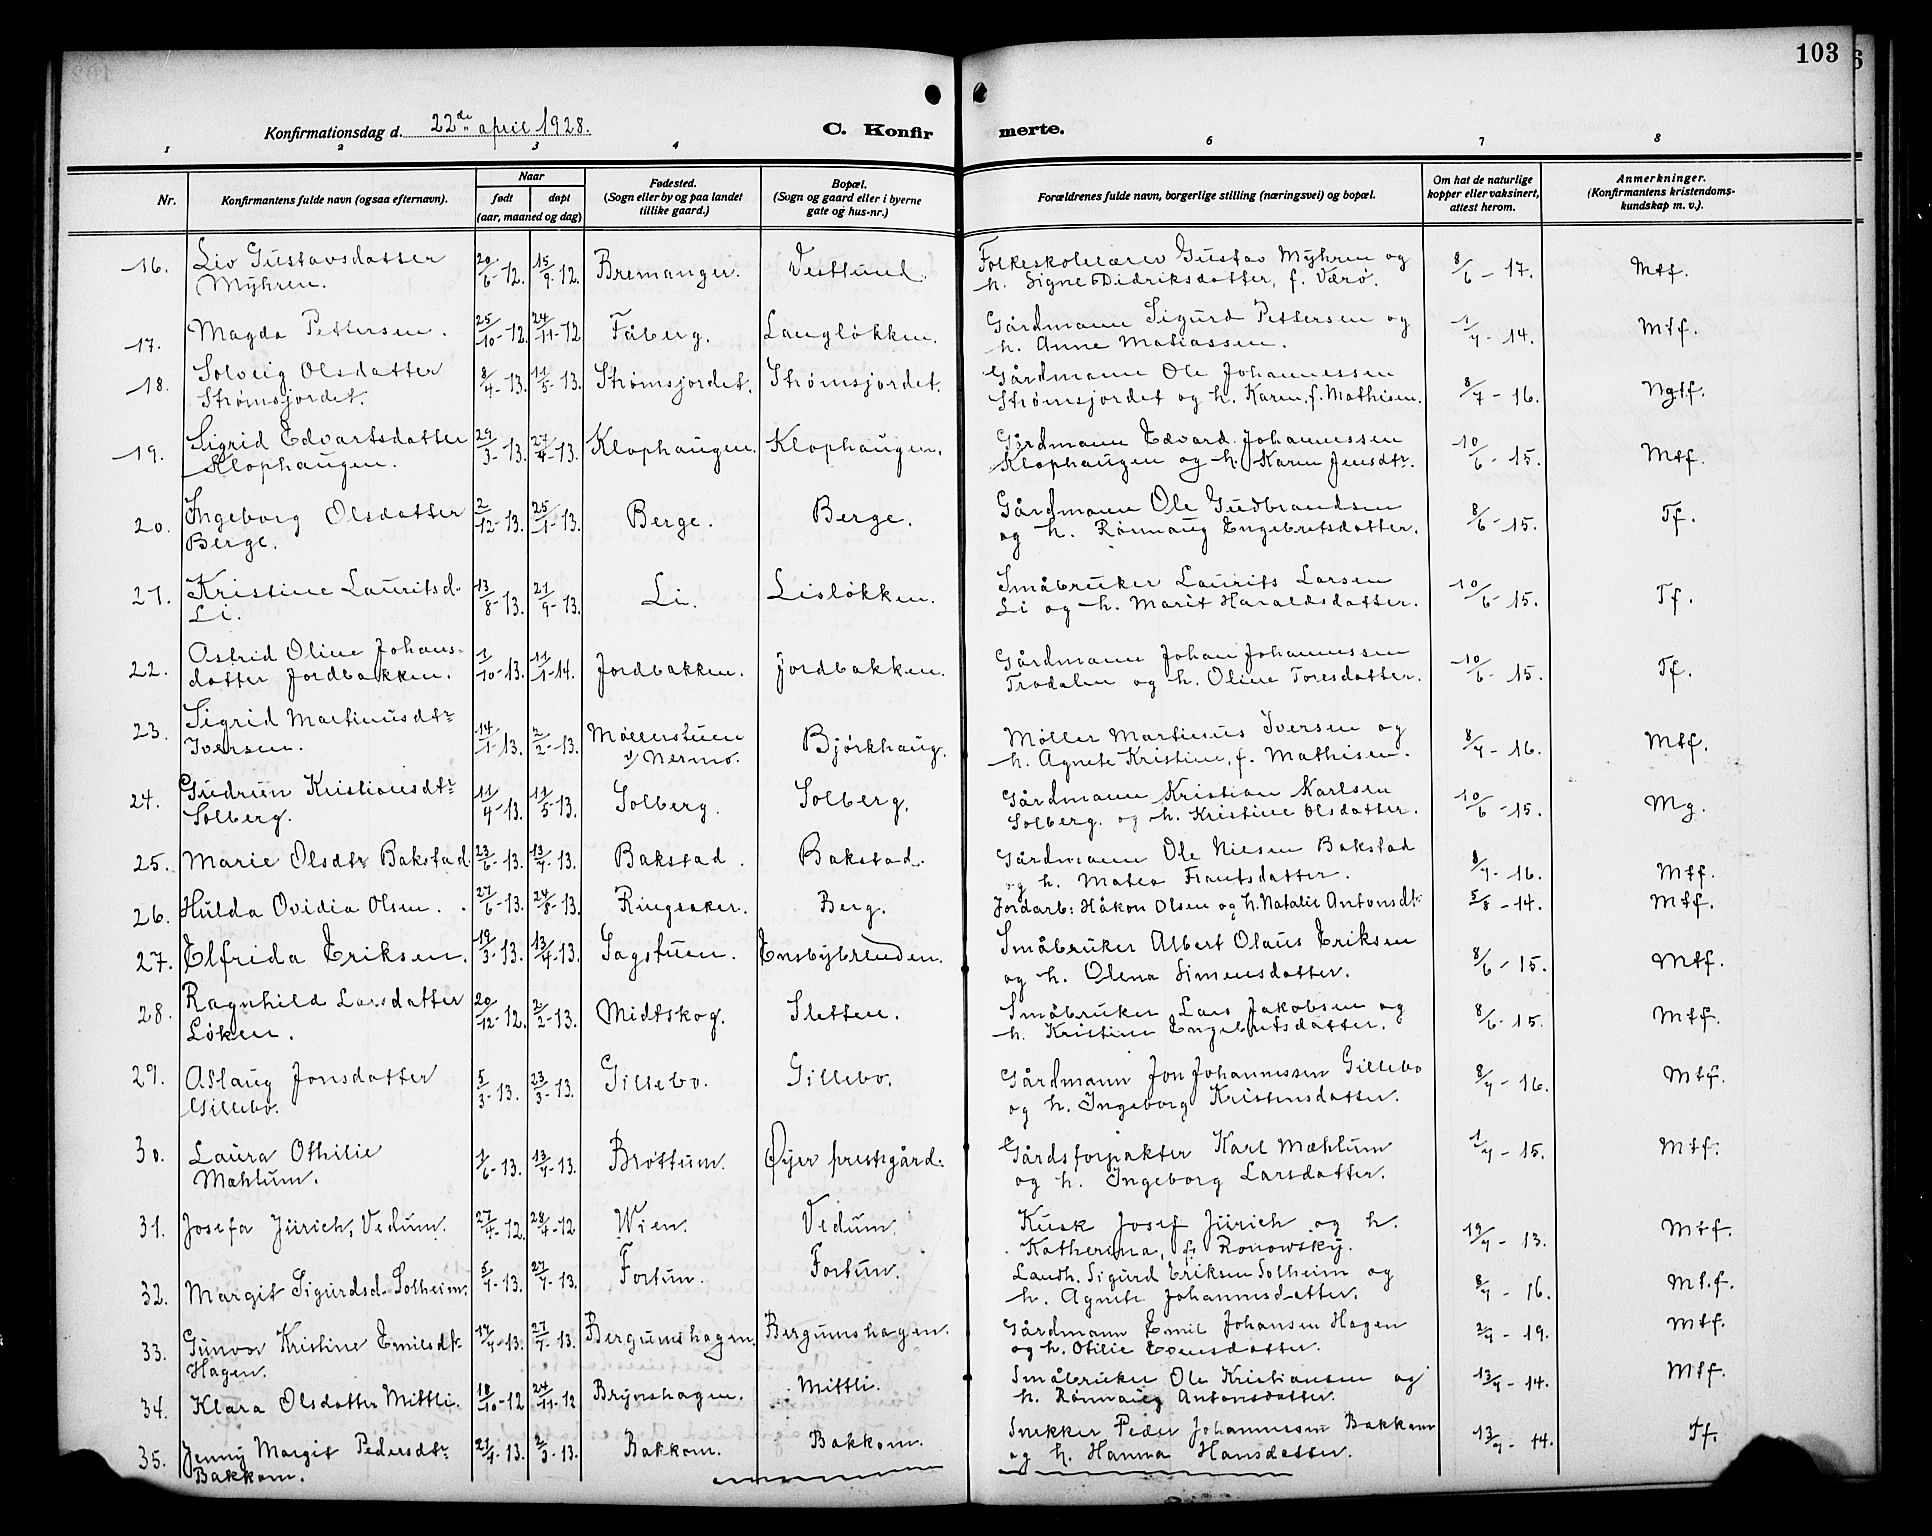 103
Konfirmationsdag d. 22de april 1928.
C. Konfirmerte.
1 2 3 4 5 6 7 8
Nr.
Konfirmantens fulde navn (ogsaa efternavn).
Naar
født døpt
(aar, maaned og dag)
Fødested.
(Sogn eller by og paa landet
tillike gaard.)
Bopæl.
(Sogn og gaard eller i byerne
gate og hus-nr.)
Forældrenes fulde navn, borgerlige stilling (næringsvei) og bopæl.
Om hat de naturlige
kopper eller vaksinert,
attest herom.
Anmerkninger.
(Konfirmantens kristendoms-
kundskap m. v.).
16. Liv Gustavsdatter 20/6-12. 15/9-12. Bremanger. Vestlund. Folkeskolelærer Gustav Myhren og 8/6-17. Mtf.
Myhren. h. Signe Didriksdatter, f. Værø.
17. Magda Pettersen. 25/10-12. 24/11-12 Fåberg. Langløkken. Gårdmann Sigurd Pettersen og 1/7-14. Mtf.
h. Anne Matiassen.
18. Solveig Olsdatter 8/4-13. 11/5-13. Strømsjordet. Strømsjordet. Gårdmann Ole Johannessen 8/7-16. Ngtf.
Strømsjordet. Strømsjordet og h. Karen, f. Mathisen.
19. Sigrid Edvartsdatter 29/3-13. 27/4-13. Klophaugen. Klophaugen. Gårdmann Edvard Johannessen 10/6-15. Mtf.
Klophaugen. Klophaugen og h. Karen Jensdtr.
20. Ingeborg Olsdatter 2/12-13. 25/1-13. Berge. Berge. Gårdmann Ole Gudbrandsen 8/6-15. Tf.
Berge. og h. Rønnaug Engebretsdatter.
21. Kristine Lauritsd. 13/8-13. 21/9-13. Li. Lisløkken. Småbruker Laurits Larsen 10/6-15. Tf.
Li. Li og h. Marit Haraldsdatter.
22. Astrid Oline Johans- 1/10-13. 11/1-14. Jordbakken. Jordbakken. Gårdmann Johan Johannessen 10/6-15. Tf.
datter Jordbakken. Trodalen og h. Oline Toresdatter.
23. Sigrid Martinusdtr 14/1-13. 2/2-13. Møllerstuen Bjørkhaug. Møller Martinus Iversen og 8/7-16. Mtf.
Iversen. v/ Nermo. h. Agnete Kristine, f. Mathisen.
24. Gudrun Kristiansdtr 11/4-13. 11/5-13. Solberg. Solberg. Gårdmann Kristian Karlsen 10/6-15. Mg.
Solberg. Solberg. og h. Kristine Olsdatter.
25. Marie Olsdtr Bakstad 23/6-13. 13/7-13. Bakstad. Bakstad. Gårdmann Ole Nilsen Bakstad 8/7-16. Mtf.
og h. Matea Frantsdatter.
26. Hulda Ovidia Olsen. 27/6-13. 24/8-13. Ringsaker. Berg. Jordarb: Håkon Olsen og h. Natalie Antonsdt. 5/8-14. Mtf.
27. Elfrida Eriksen. 19/3-13. 13/4-13. Sagstuen. Ensbybrenden. Småbruker Albert Olaus Eriksen 8/6-15. Mtf.
og h. Olena Simensdatter.
28. Ragnhild Larsdatter 20/12-12. 2/2-13. Midtskog. Sletten. Småbruker Lars Jakobsen og 8/6-15. Mtf.
Løken. h. Kristine Engebretsdatter.
29. Aslaug Jonsdatter 5/3-13. 23/3-13. Gillebo. Gillebo. Gårdmann Jon Johannessen Gillebo 8/7-16. Mtf.
Gillebo. og h. Ingeborg Kristensdatter.
30. Laura Othilie 1/6-13. 13/7-13. Brøttum. Øyer prestegård. Gårdsforpakter Karl Mæhlum 1/7-15. Mtf.
Mæhlum. og h. Ingeborg Larsdatter.
31. Josefa Jürich, Vedum. 27/4-12. 28/4-12 Wien. Vedum. Kusk Josef Jürich og h. 19/7-13. Mtf.
Katherina, f. Ronowsky.
32. Margit Sigurdsd. Solheim. 5/7-13. 27/7-13. Fortun. Fortun. Landh. Sigurd Eriksen Solheim og 8/7-16. Mt.f.
h. Agnete Johannesdatter.
33. Gunvor Kristine Emilsdt. 17/7-13. 27/7-13. Bergumshagen. Bergumshagen. Gårdmann Emil Johansen Hagen 2/7-19. Mtf.
Hagen. og h. Otilie Evensdatter.
34. Klara Olsdatter Mittli. 18/10-12 24/11-12 Brynshagen. Mittli. Småbruker Ole Kristiansen og 13/7-14. Mtf.
h. Rønnaug Antonsdatter.
35. Jenny Margit Pedersdtr 21/1-13. 2/3-13. Bakkom. Bakkom. Snekker Peder Johannesen Bakkom 13/7-14. Tf.
Bakkom. og h. Hanna Hansdatter.